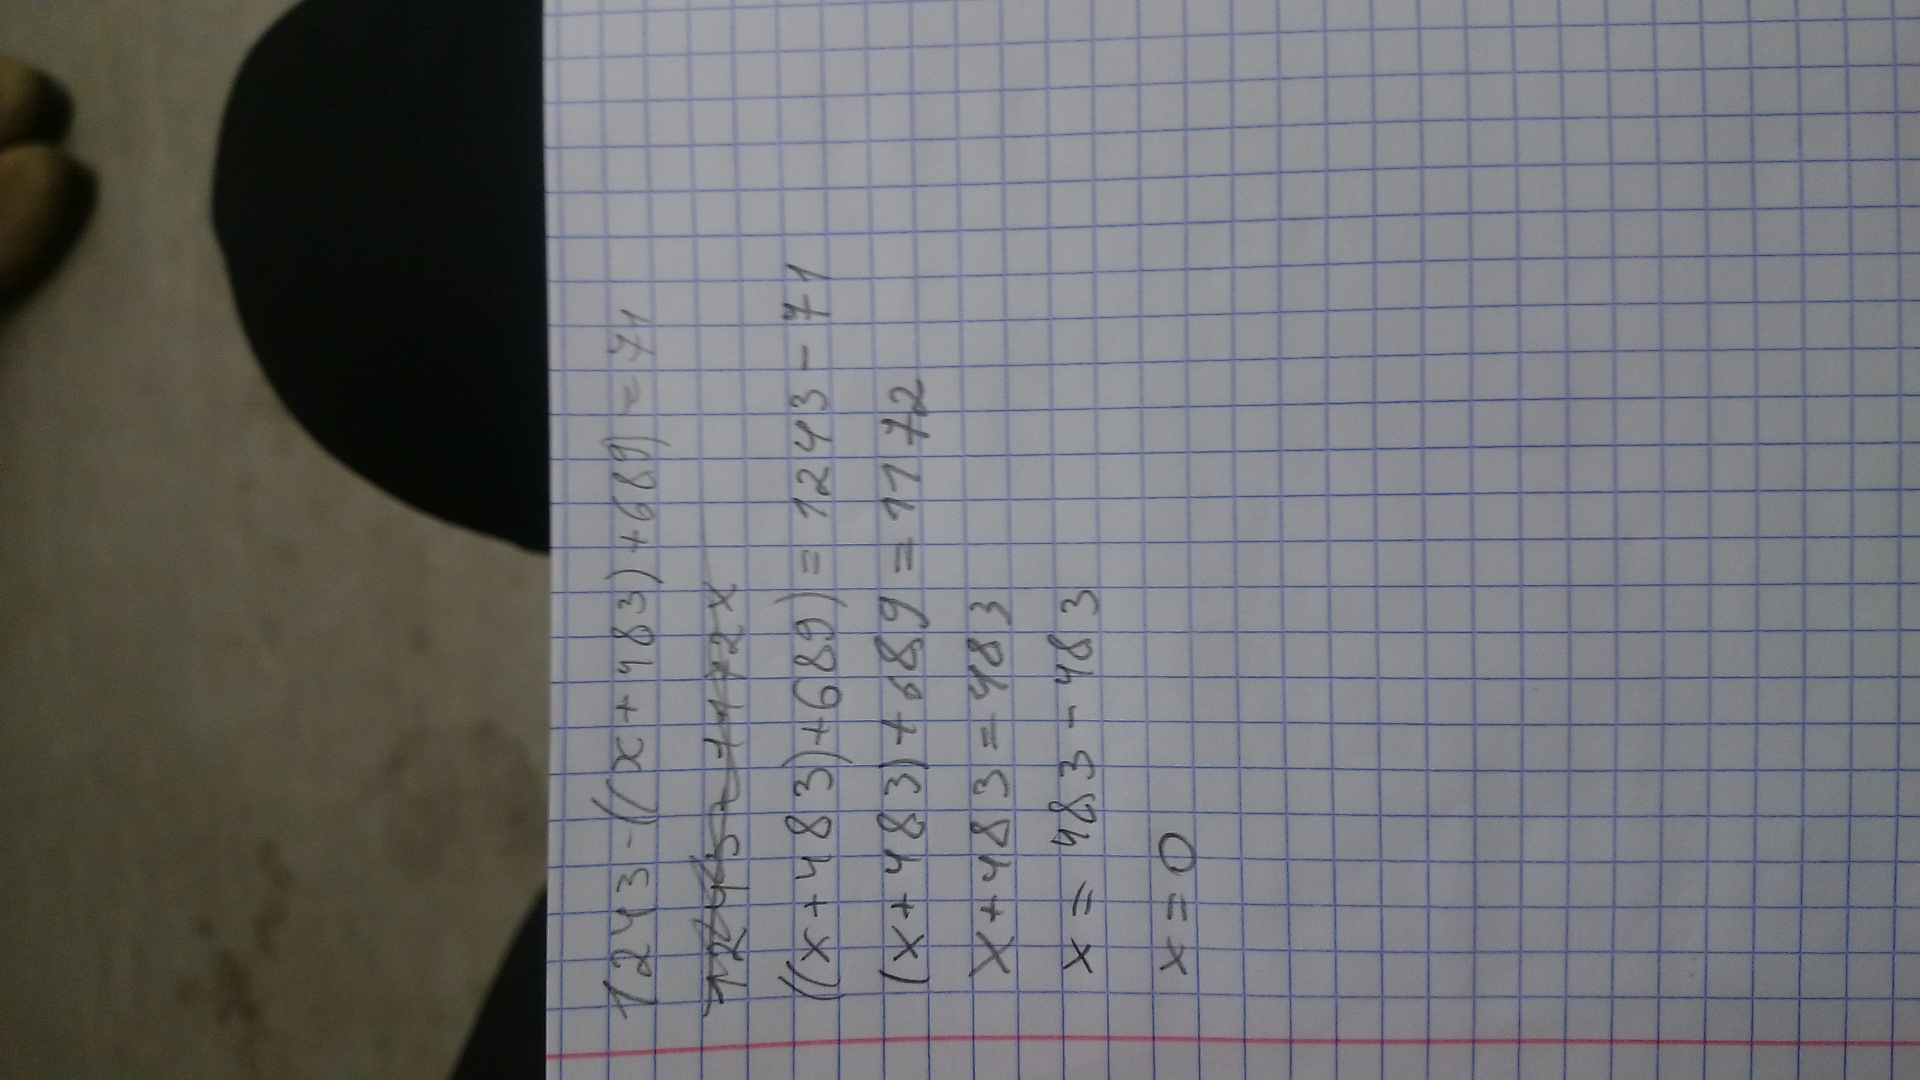 1243-((x+483)+689)=71
((x+483)+689)=1243-71
(x+483)+689=1172
x+483=483
x=483-483
x=0